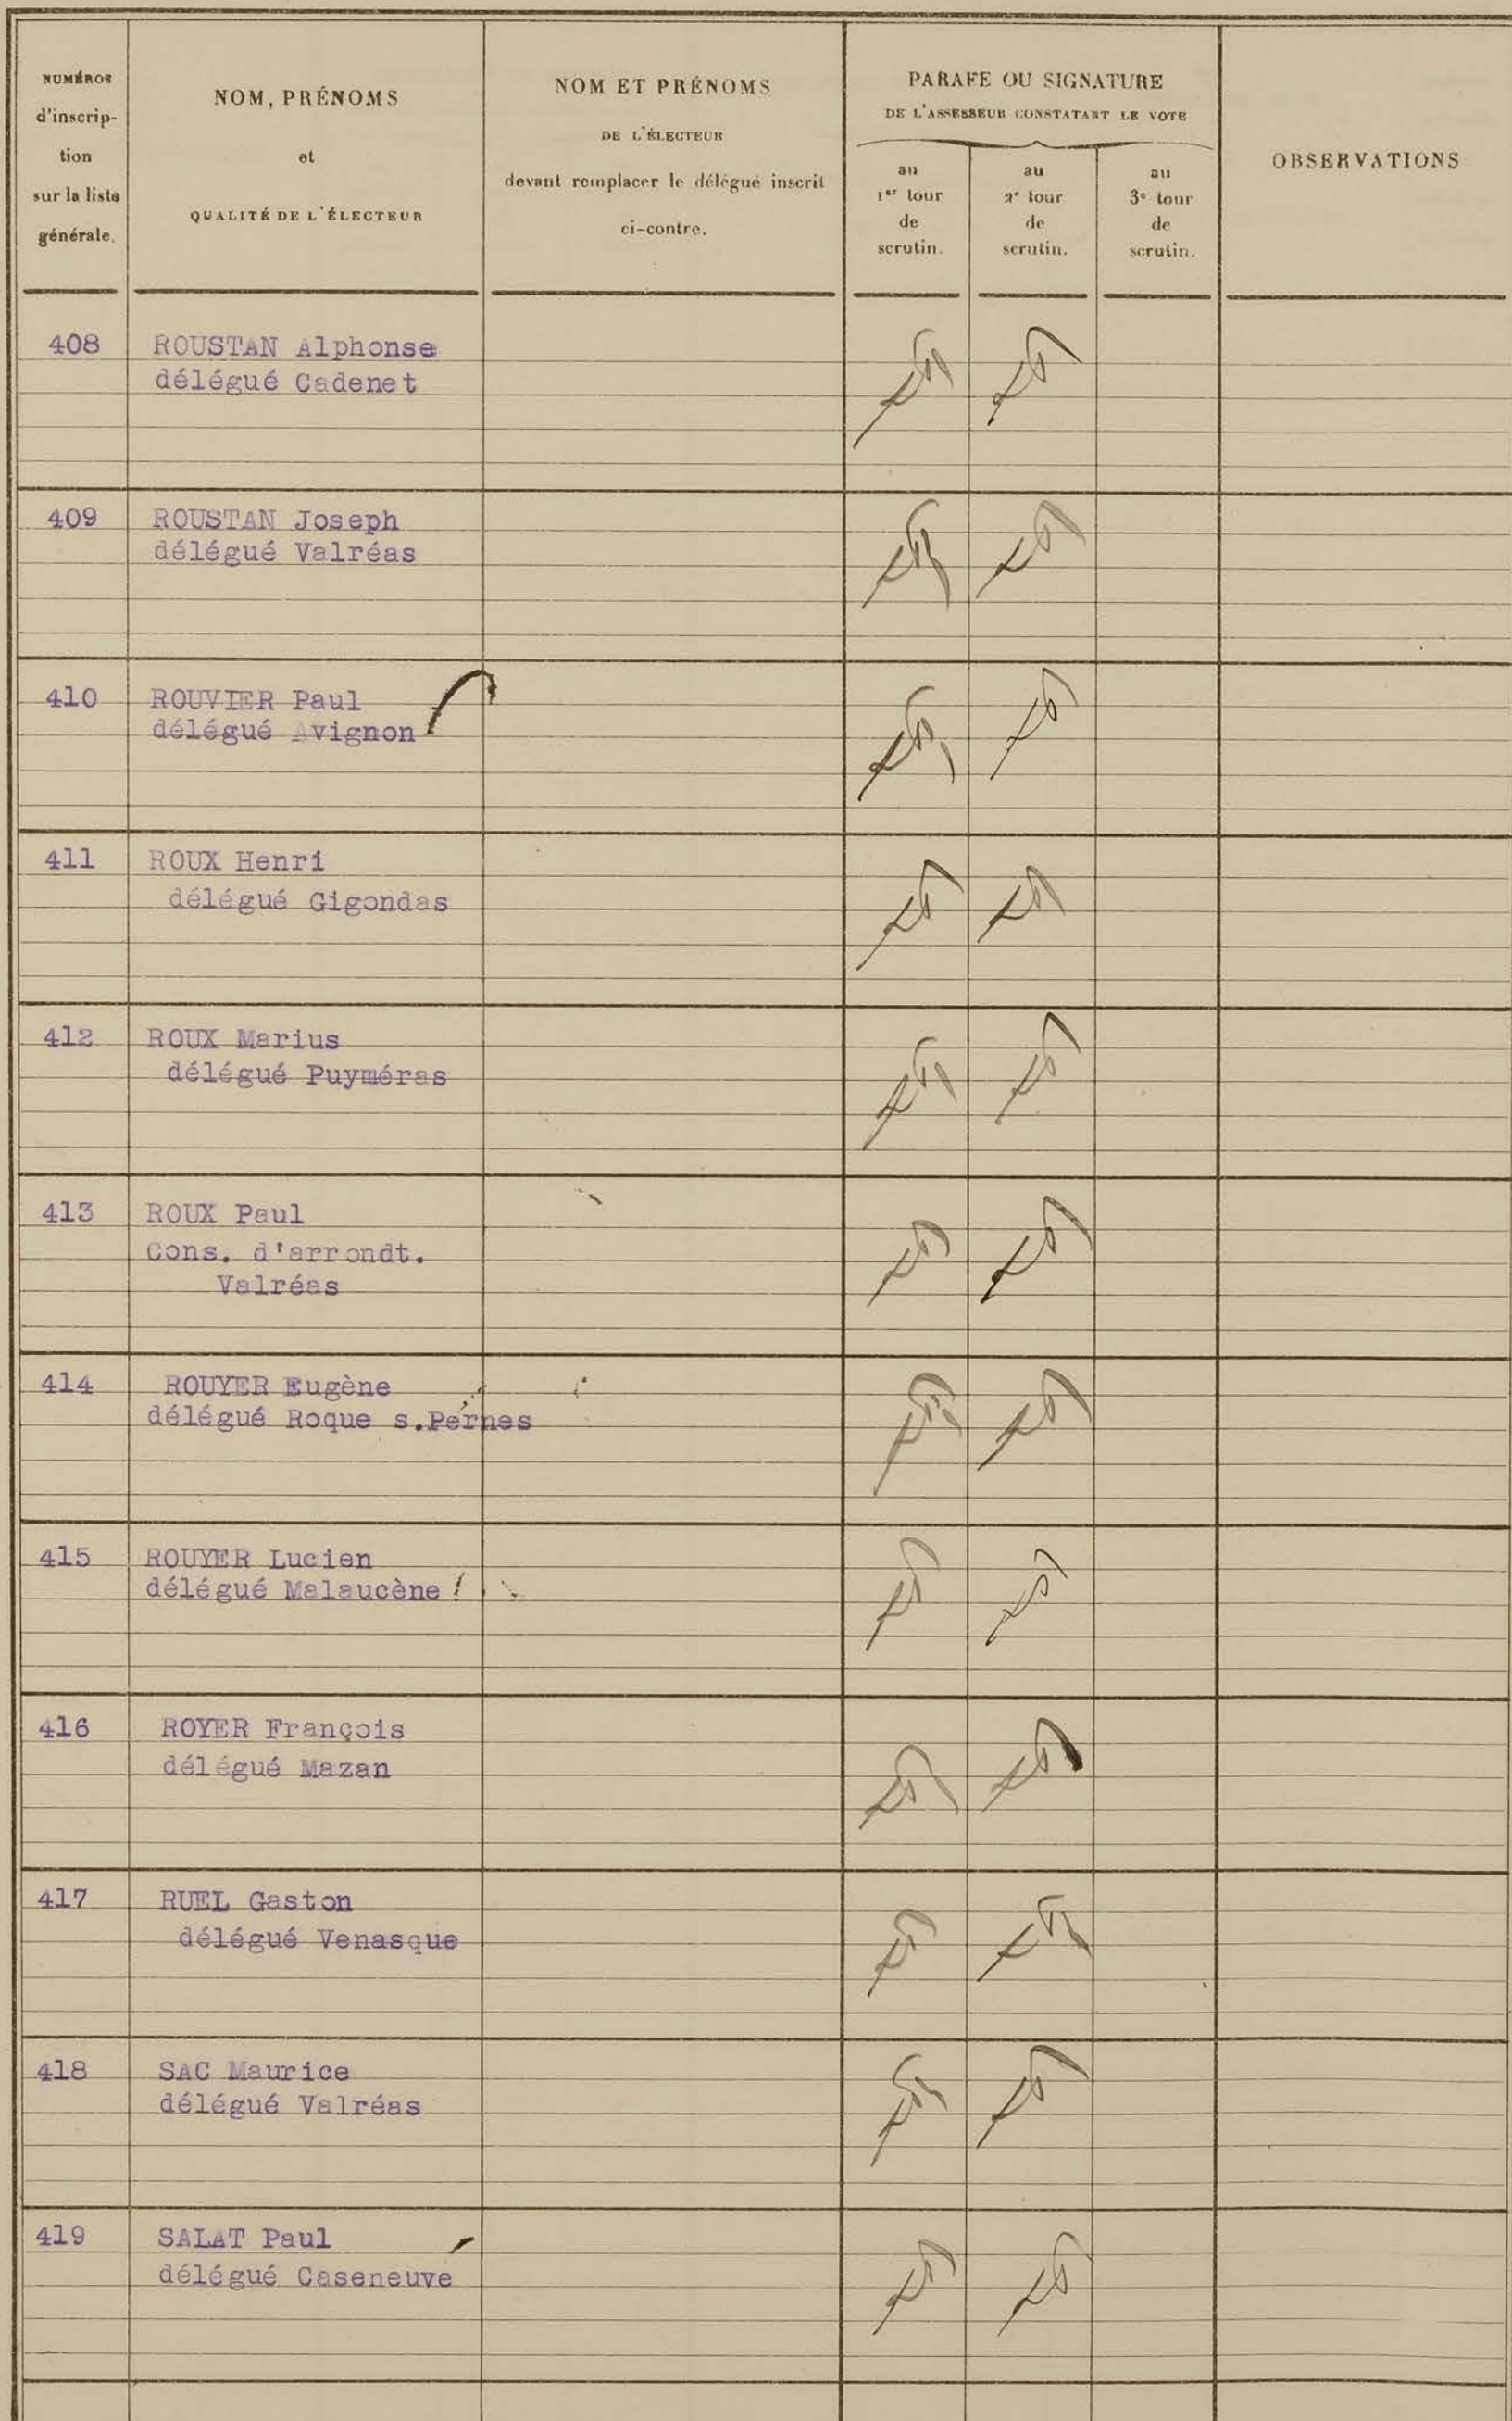 NUMÉROS
d'inscrip-
tion
sur la liste
générale.
NOM, PRÉNOMS
et
QUALITÉ DE L'ÉLECTEUR
NOM ET PRÉNOMS
DE L'ÉLECTEUR
devant remplacer le délégué inscrit
ci-contre.
PARAFE OU SIGNATURE
DE L'ASSESSEUR CONSTATANT LE VOTE
au
1er tour
de
scrutin.
au
2e tour
de
scrutin.
au
3e tour
de
scrutin.
OBSERVATIONS
408 ROUSTAN Alphonse
délégué Cadenet
409 ROUSTAN Joseph
délégué Valréas
410 ROUVIER Paul
délégué Avignon
411 ROUX Henri
délégué Gigondas
412 ROUX Marius
délégué Puyméras
413 ROUX Paul
Cons. d'arrondt.
Valréas
414 ROUYER Eugène
délégué Roque s.Pernes
415 ROUYER Lucien
délégué Malaucène
416 ROYER François
délégué Mazan
417 RUEL Gaston
délégué Venasque
418 SAC Maurice
délégué Valréas
419 SALAT Paul
délégué Caseneuve